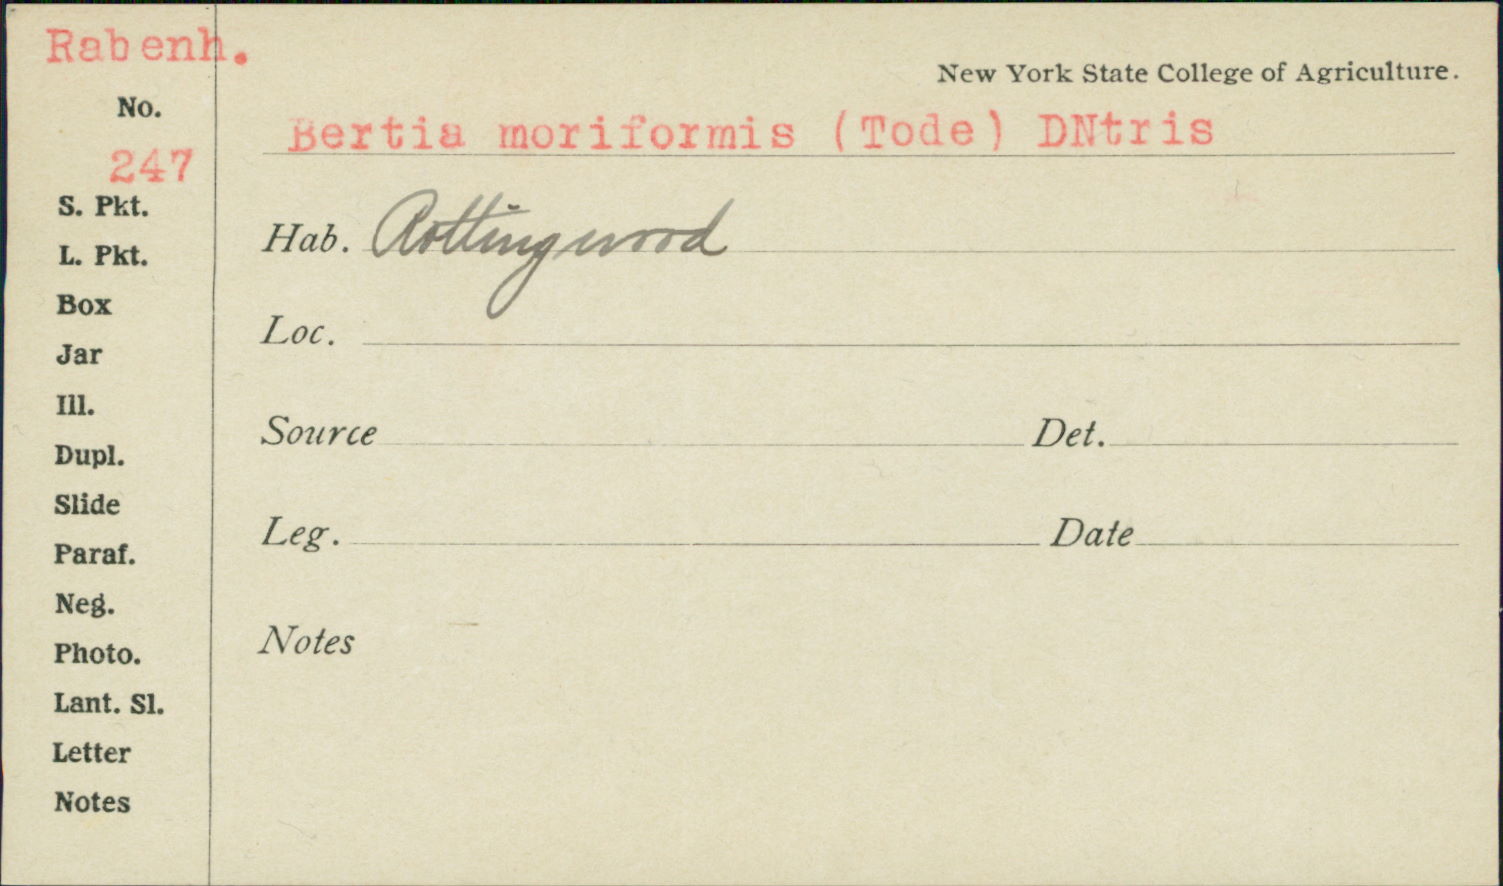 Rabenh.
New York State College of Agriculture.
No.
247
Bertia moriformis (Tode) DNtris
S. Pkt.
L. Pkt.
Box
Jar
Ill.
Dupl.
Slide
Paraf.
Neg.
Photo.
Lant. Sl.
Letter
Notes
Hab. Rotting wood
Loc.
Source Det.
Leg. Date
Notes